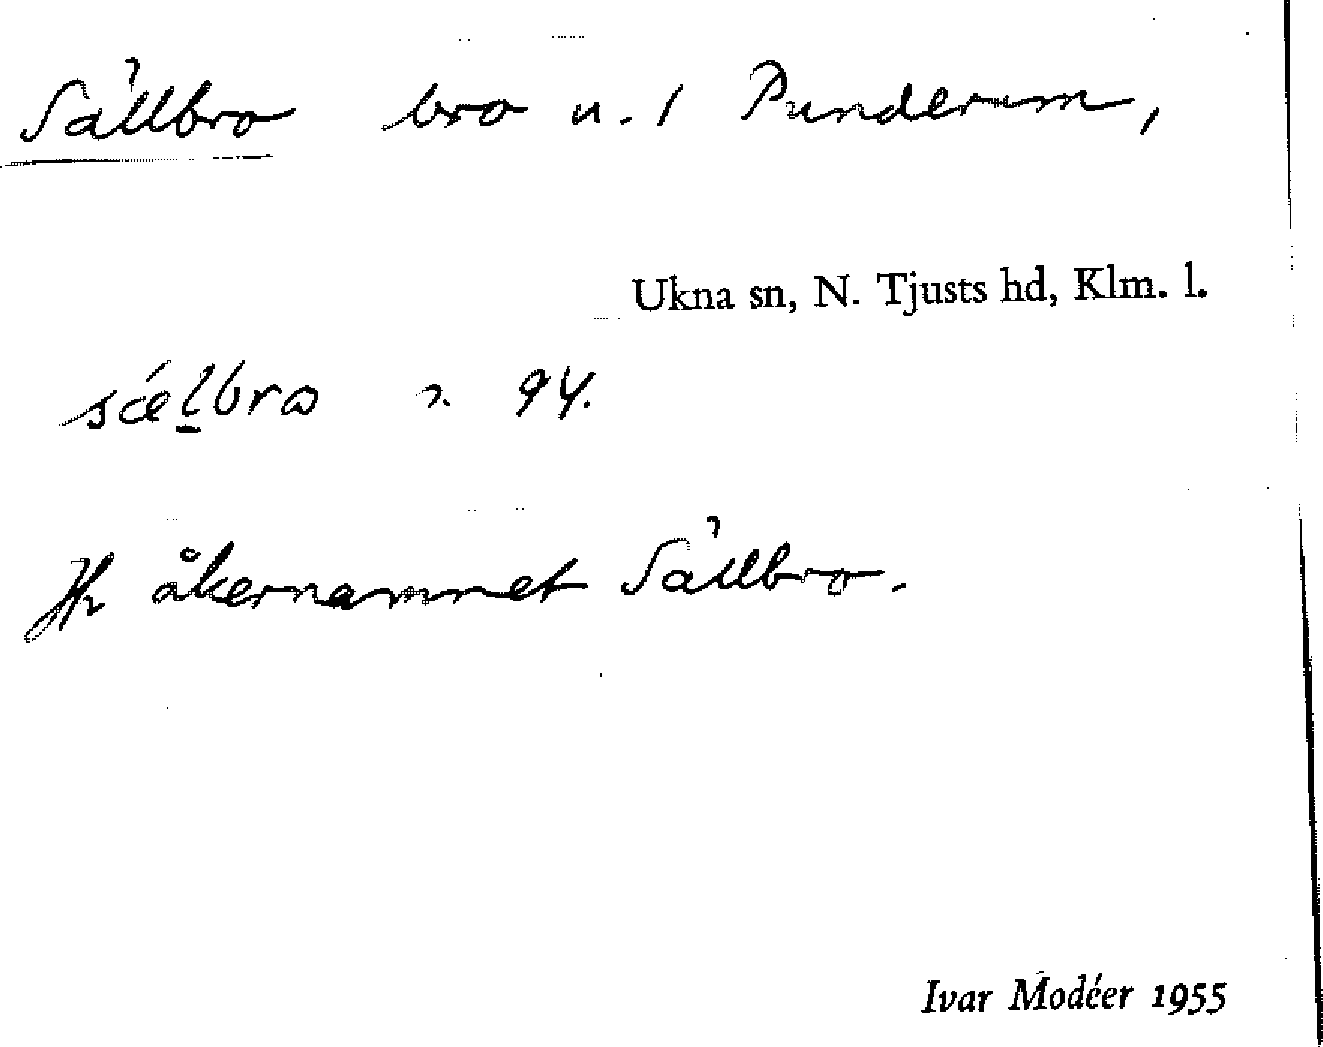 Sällbro bro u. / Punderum,
Ukna sn, N. Tjusts hd, Klm. l.
sælbro 94.
Jfr åkernamnet Sällbro.
Ivar Modéer 1955